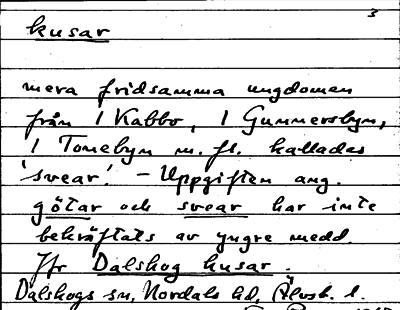 3
husar
mera fridsamma ungdomen
från 1 Kabbo, 1 Gunnersbyn,
1 Tonebyn m. fl. kallades
'svear'. - Uppgiften ang.
götar och svear har inte
bekräftats av yngre medd.
Jfr Dalskog husar.
Dalskogs sn, Nordals hd, Älvsb. l.